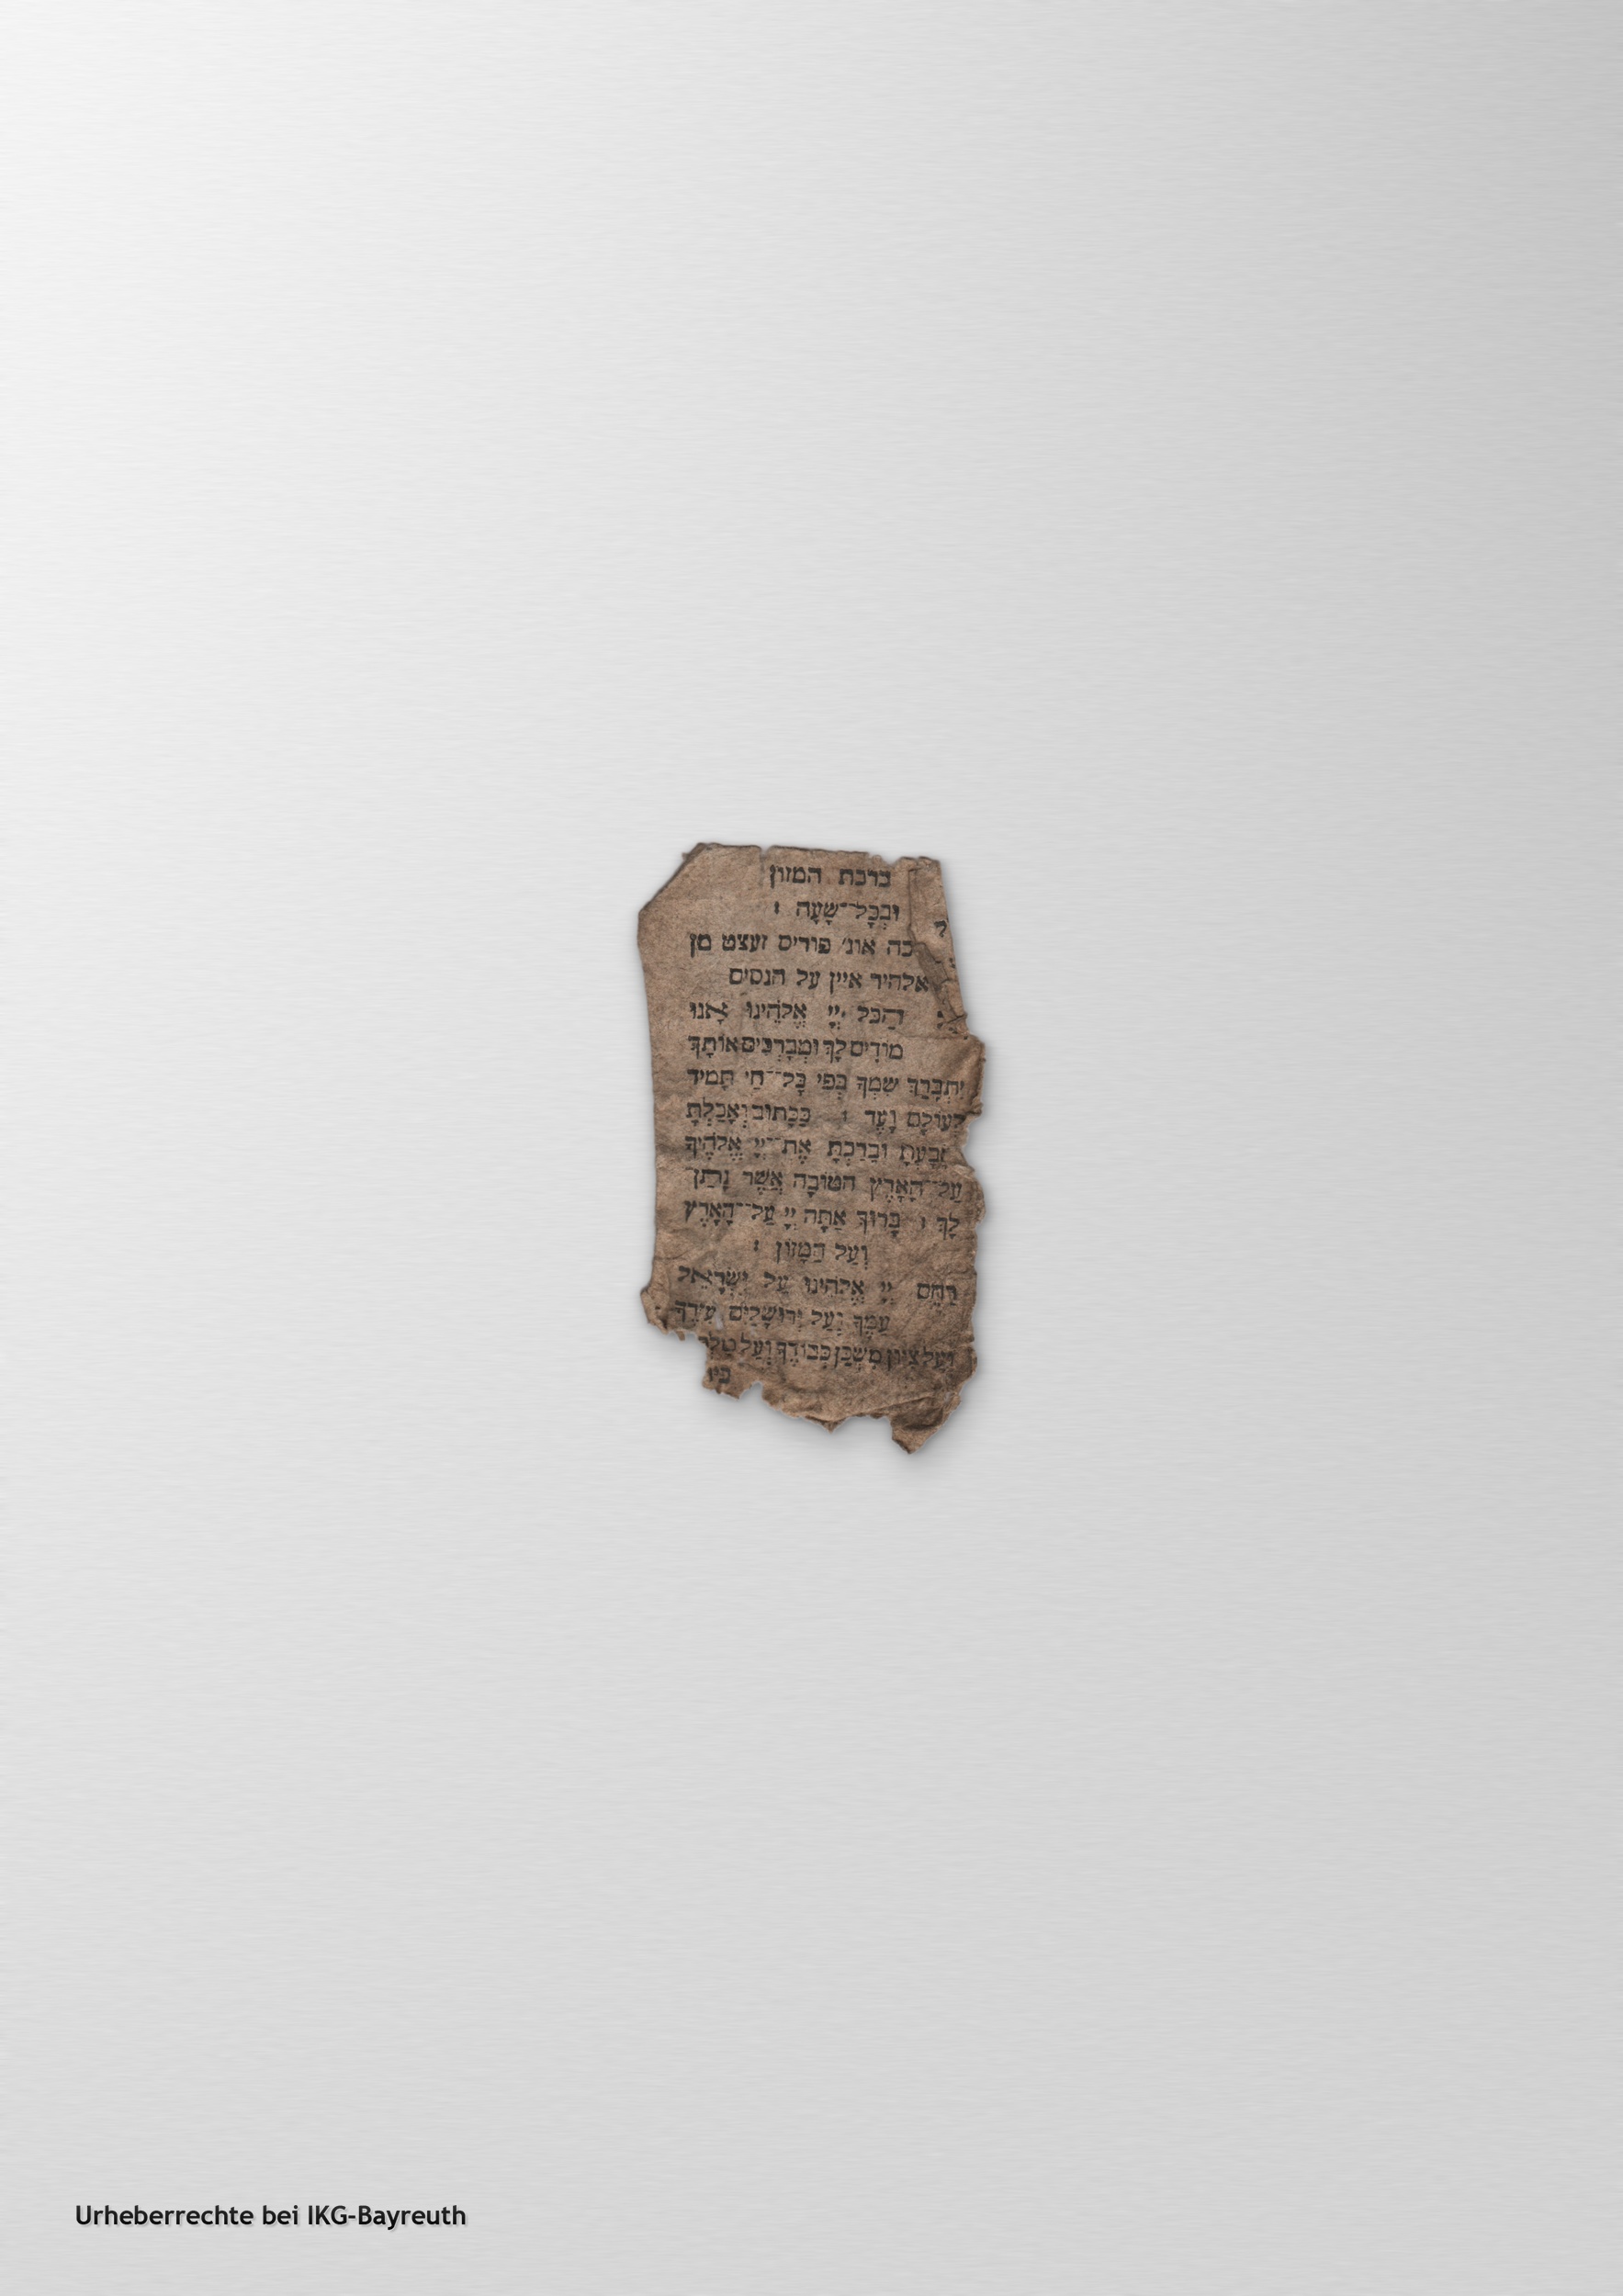 ברכת המזון
וּבְכָל־שָׁעָה :
כה אונ׳ פורים זעצט מן
אלהיר איין על הנסים
הַכֹּל יְיָ אֱלֹהֵינוּ אָנוּ
מוֹדִים לָךְ וּמְבָרְכִים אוֹתָךְ
יִתְבָּרַךְ שִׁמְךָ בְּפִי כָּל־חַי תָּמִיד
לְעוֹלָם וָעֶד : כַּכָּתוּב וְאָכַלְתָּ
וּבֵרַכְתָּ אֶת־יְיָ אֱלֹהֶיךָ
עַל־הָאָרֶץ הַטּוֹבָה אֲשֶׁר נָתַן
לָךְ : בָּרוּךְ אַתָּה יְיָ עַל־הָאָרֶץ
וְעַל הַמָּזוֹן :
רַחֵם יְיָ אֱלֹהֵינוּ עַל יִשְׂרָאֵל
עַמֶּךָ וְעַל יְרוּשָׁלַיִם עִירֶךָ
וְעַל צִיּוֹן מִשְׁכַּן כְּבוֹדֶךָ וְעַל
Urheberrechte bei IKG-Bayreuth